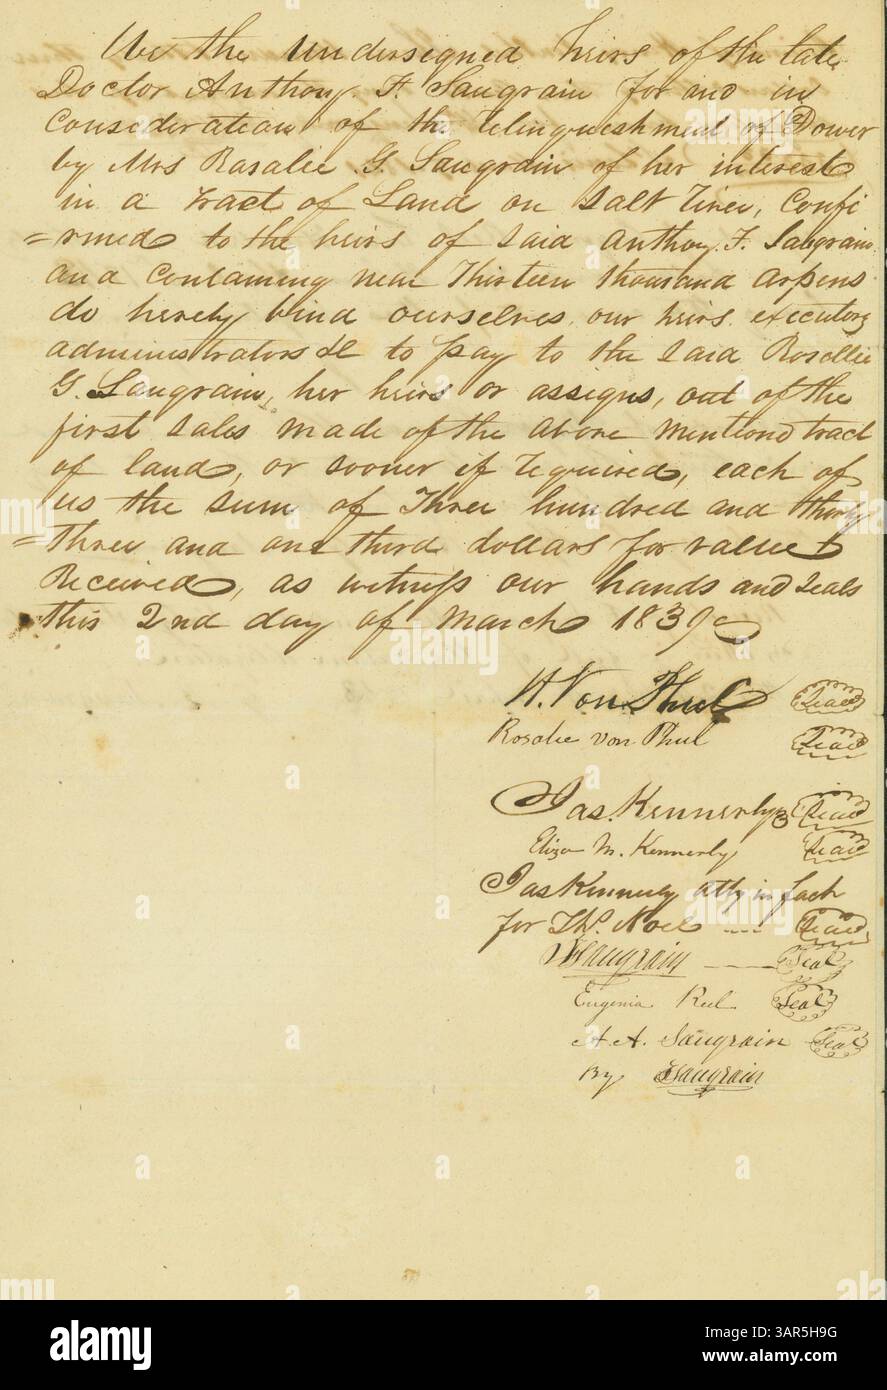 We the Undersigned heirs of the late
Doctor Anthony. F. Saugrain for and in
Consideration of the relinquishment of Dower
by Mrs Rasalie G. Saugrain of her interest
in a tract of Land on Salt river, Confi
=rmed to the heirs of said Anthony. F. Saugrain
and containing near Thirteen thousand arpens
do hereby bind ourselves, our heirs, executors
administrators &c to pay to the said Rosalie
G. Saugrain, her heirs or assigns, out of the
first sales made of the above mentiond tract
of land, or sooner if required, each of
us the sum of Three hundred and thirty
=three and one third dollars for value
Received, as witness our hands and seals
this 2nd day of March 1839
H. Von Phul Seal
Rosalie von Phul Seal
Jas. Kennerly Seal
Eliza M. Kennerly Seal
Jas Kennerly atty in fact
for Th. Noel --- Seal
Saugrain — Seal
Eugenia Reel Seal
A. A. Saugrain Seal
By Saugrain
alamy
Image ID: 3AR5H9G
www.alamy.com